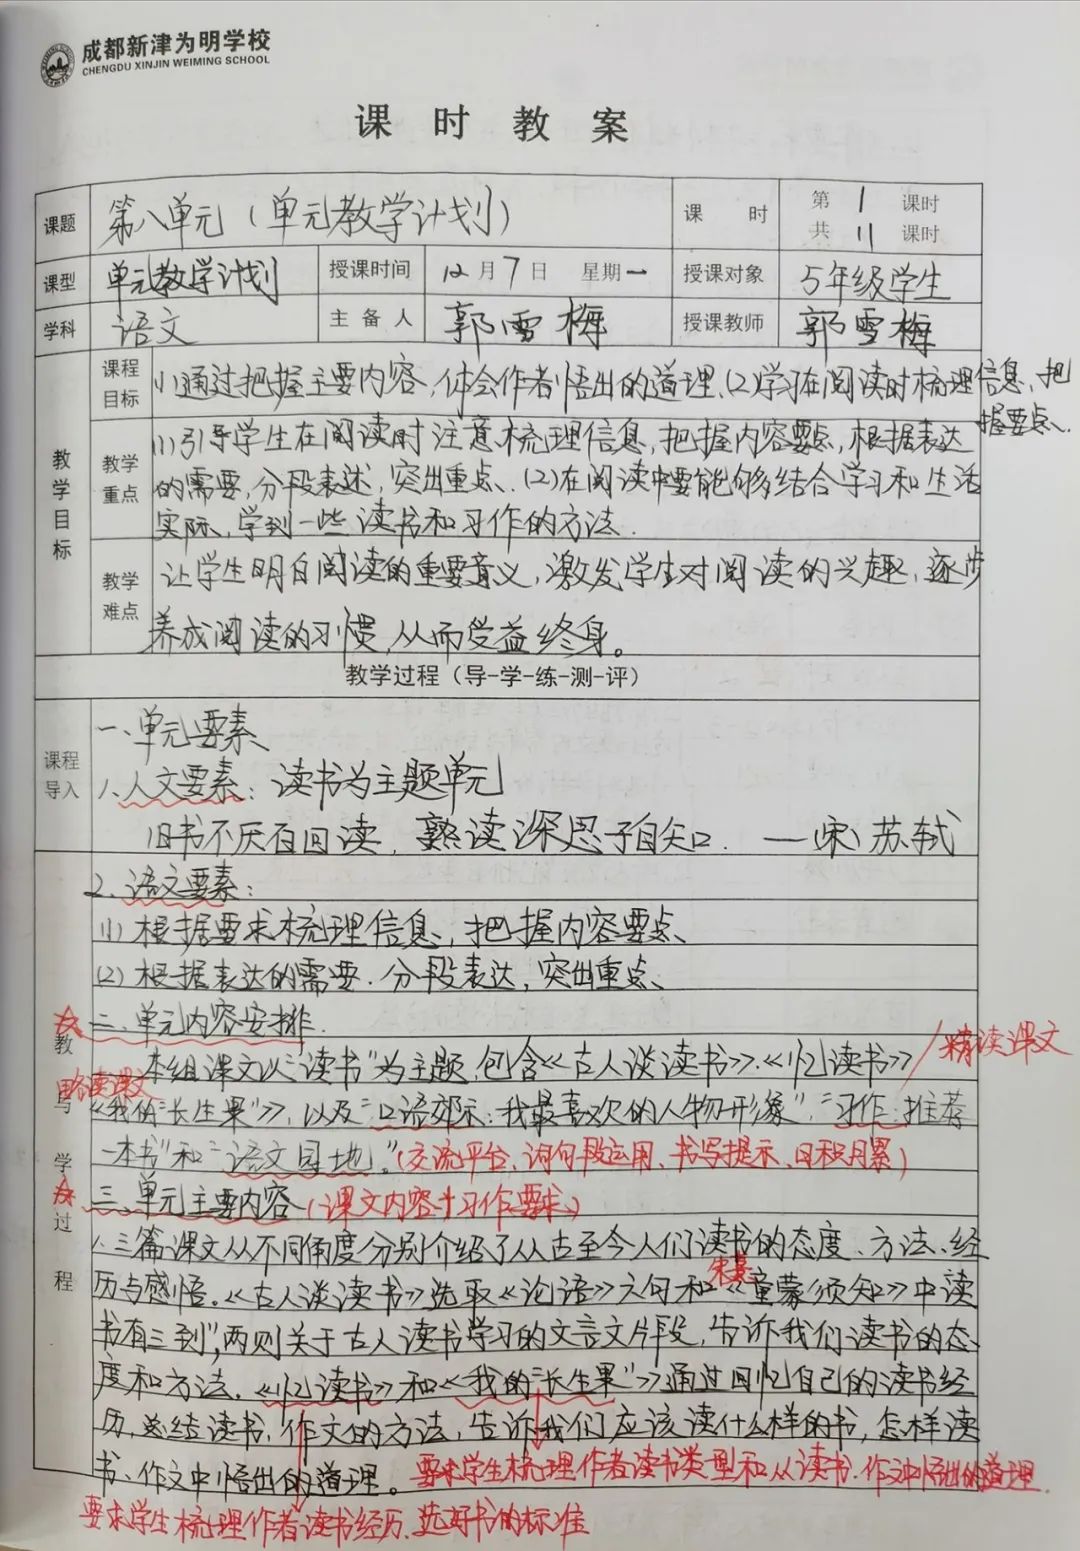 成都新津为明学校
CHENGDU XINJIN WEIMING SCHOOL
课 时 教 案
课题 第八单元（单元教学计划） 课 时 第 1 课时
共 11 课时
课型 单元教学计划 授课时间 12 月 7 日 星期一 授课对象 5年级学生
学科 语文 主 备 人 郭雪梅 授课教师 郭雪梅
教学目标
课程目标 (1)通过把握主要内容,体会作者悟出的道理.(2)学习在阅读时梳理信息、把
握要点、
教学重点 (1)引导学生在阅读时注意梳理信息,把握内容要点,根据表达
的需要,分段表述,突出重点、(2)在阅读中要能够结合学习和生活
实际、学到一些读书和习作的方法.
教学难点 让学生明白阅读的重要意义,激发学生对阅读的兴趣,逐步
养成阅读的习惯,从而受益终身。
教学过程（导-学-练-测-评）
课程导入 一、单元要素
1、人文要素：读书为主题单元
旧书不厌百回读，熟读深思子自知. —(宋)苏轼
教与学过程
2、语文要素：
(1) 根据要求梳理信息,把握内容要点、
(2) 根据表达的需要.分段表达,突出重点、
☆二、单元内容安排.
本组课文以“读书”为主题,包含《古人谈读书》.《忆读书》 精读课文
略读课文
《我的“长生果”》,以及“口语交际：我最喜欢的人物形象”,“习作：推荐
一本书”和“语文园地。”(交流平台、词句段运用、书写提示、日积月累)
☆三、单元主要内容(课文内容+习作要求)
1.三篇课文从不同角度分别介绍了从古至今人们读书的态度、方法、经
历与感悟.《古人谈读书》选取《论语》六句和《童蒙须知》中“读
书有三到”,两则关于古人读书学习的文言文片段,告诉我们读书的态
度和方法.《忆读书》和《我的“长生果”》通过回忆自己的读书经
历,总结读书,作文的方法,告诉我们应该读什么样的书,怎样读
书、作文中悟出的道理。要求学生梳理作者读书类型和从读书、作文中悟出的道理.
要求学生梳理作者读书经历、选好书的标准